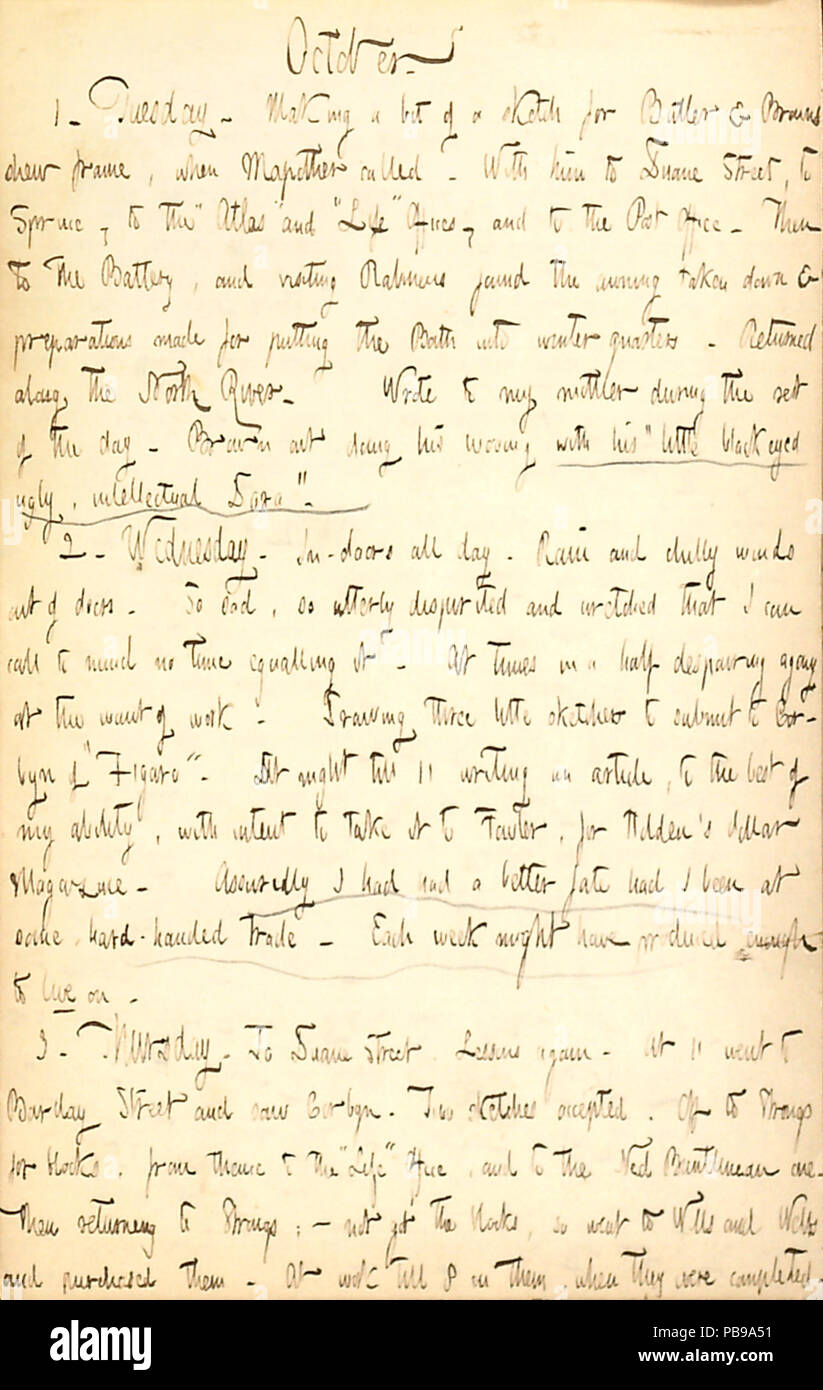 October.
1 - Tuesday - Making a bit of a sketch for Butler & Browns
shew frame, when Mapother called - With him to Duane Street, to
Spruce, to the "Atlas" and "Life" Offices, and to the Post Office - Then
to the Battery, and visiting Rabineus found the awning taken down &
preparations made for putting the Bath into winter quarters - Returned
along the North River - Wrote to my mother during the rest
of the day - Brown out doing his wooing with his "little black eyed
ugly, intellectual Dora".
2 - Wednesday - In-doors all day - Rain and chilly winds
out of doors - So sad, so utterly dispirited and wretched that I can
call to mind no time equalling it - At times in a half despairing agony
at the want of work - Drawing three little sketches to submit to Cor-
byn of "Figaro" - At night till 11 writing an article, to the best of
my ability, with intent to take it to Fowler, for Holden's Dollar
Magazine - Assuredly I had had a better fate had I been at
some hard-handed trade - Each week might have produced enough
to live on -
3 - Thursday - To Duane Street. Lessons again - At 11 went to
Barclay Street and saw Corbyn - Two sketches accepted. Off to Strongs
for blocks, from thence to the "Life" Office, and to the Ned Buntlinean one -
Then returning to Strongs; - not got the blocks, so went to Wells and Webb
and purchased them - At work till 8 on them, when they were completed -
alamy
PB9A51
www.alamy.com